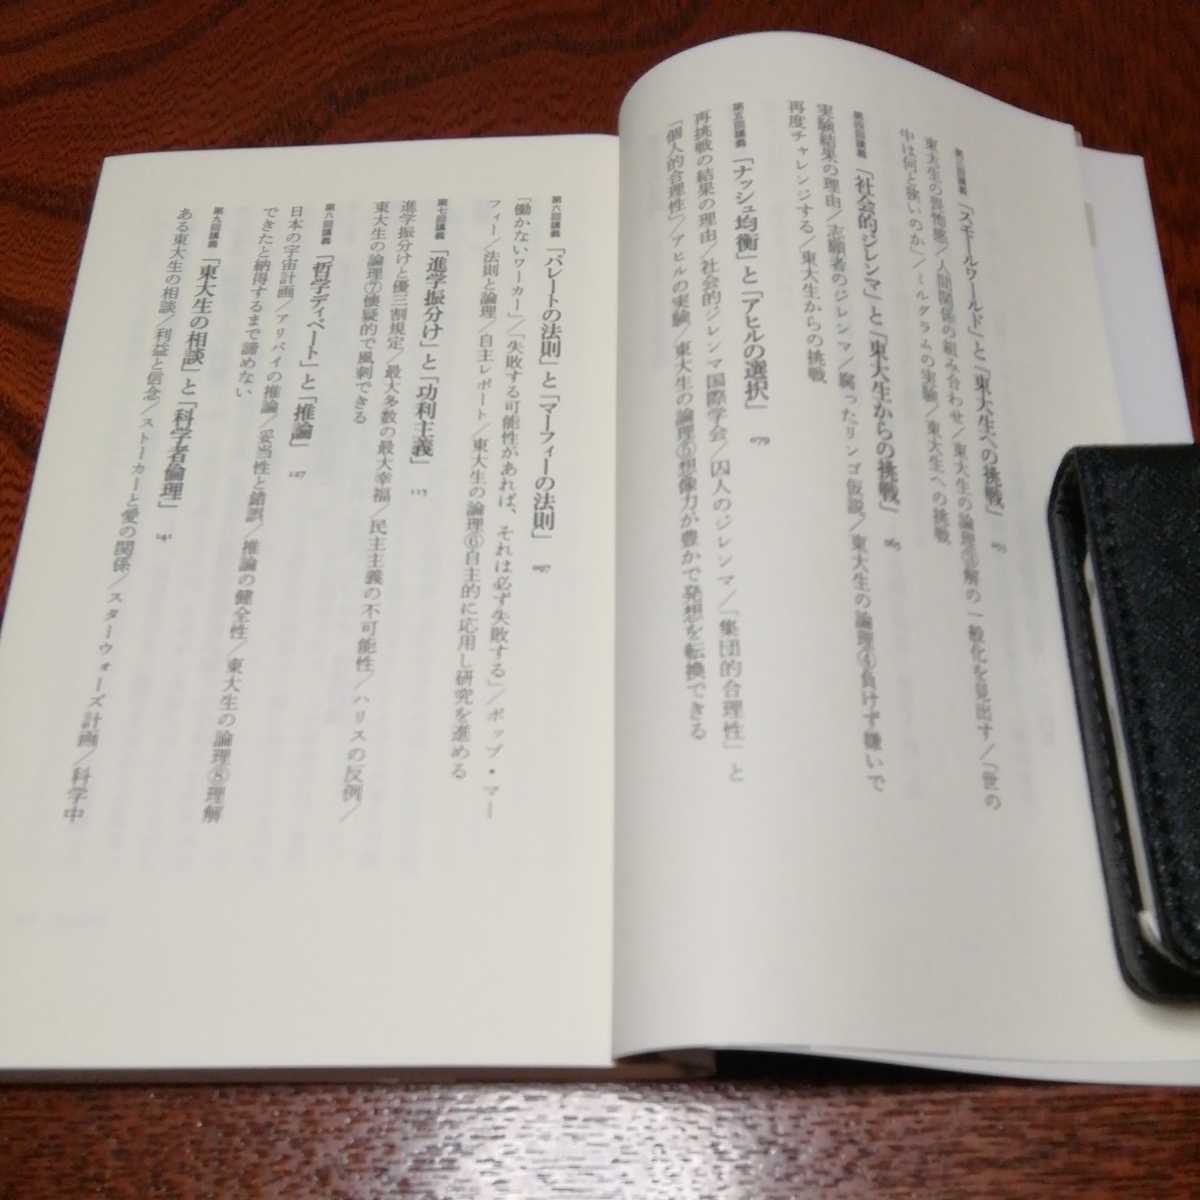 第三回講義 「スモールワールド」と「東大生への挑戦」 053
東大生の恐怖感/人間関係の組み合わせ/東大生の論理③解の一般化を見出す/「世の
中は何と狭いのか」/ミルグラムの実験/東大生への挑戦
第四回講義 「社会的ジレンマ」と「東大生からの挑戦」 065
実験結果の理由/志願者のジレンマ/腐ったリンゴ仮説/東大生の論理④負けず嫌いで
再度チャレンジする/東大生からの挑戦
第五回講義 「ナッシュ均衡」と「アヒルの選択」 079
再挑戦の結果の理由/社会的ジレンマ国際学会/囚人のジレンマ/「集団的合理性」と
「個人的合理性」/アヒルの実験/東大生の論理⑤想像力が豊かで発想を転換できる
第六回講義 「パレートの法則」と「マーフィーの法則」 097
「働かないワーカー」/「失敗する可能性があれば、それは必ず失敗する」/ポップ・マー
フィー/法則と論理/自主レポート/東大生の論理⑥自主的に応用し研究を進める
第七回講義 「進学振分け」と「功利主義」 113
進学振分けと優三割規定/最大多数の最大幸福/民主主義の不可能性/ハリスの反例/
東大生の論理⑦懐疑的で風刺できる
第八回講義 「哲学ディベート」と「推論」 127
日本の宇宙計画/アリバイの推論/妥当性と錯誤/推論の健全性/東大生の論理⑧理解
できたと納得するまで諦めない
第九回講義 「東大生の相談」と「科学者倫理」 141
ある東大生の相談/利益と信念/ストーカーと愛の関係/スターウォーズ計画/科学中